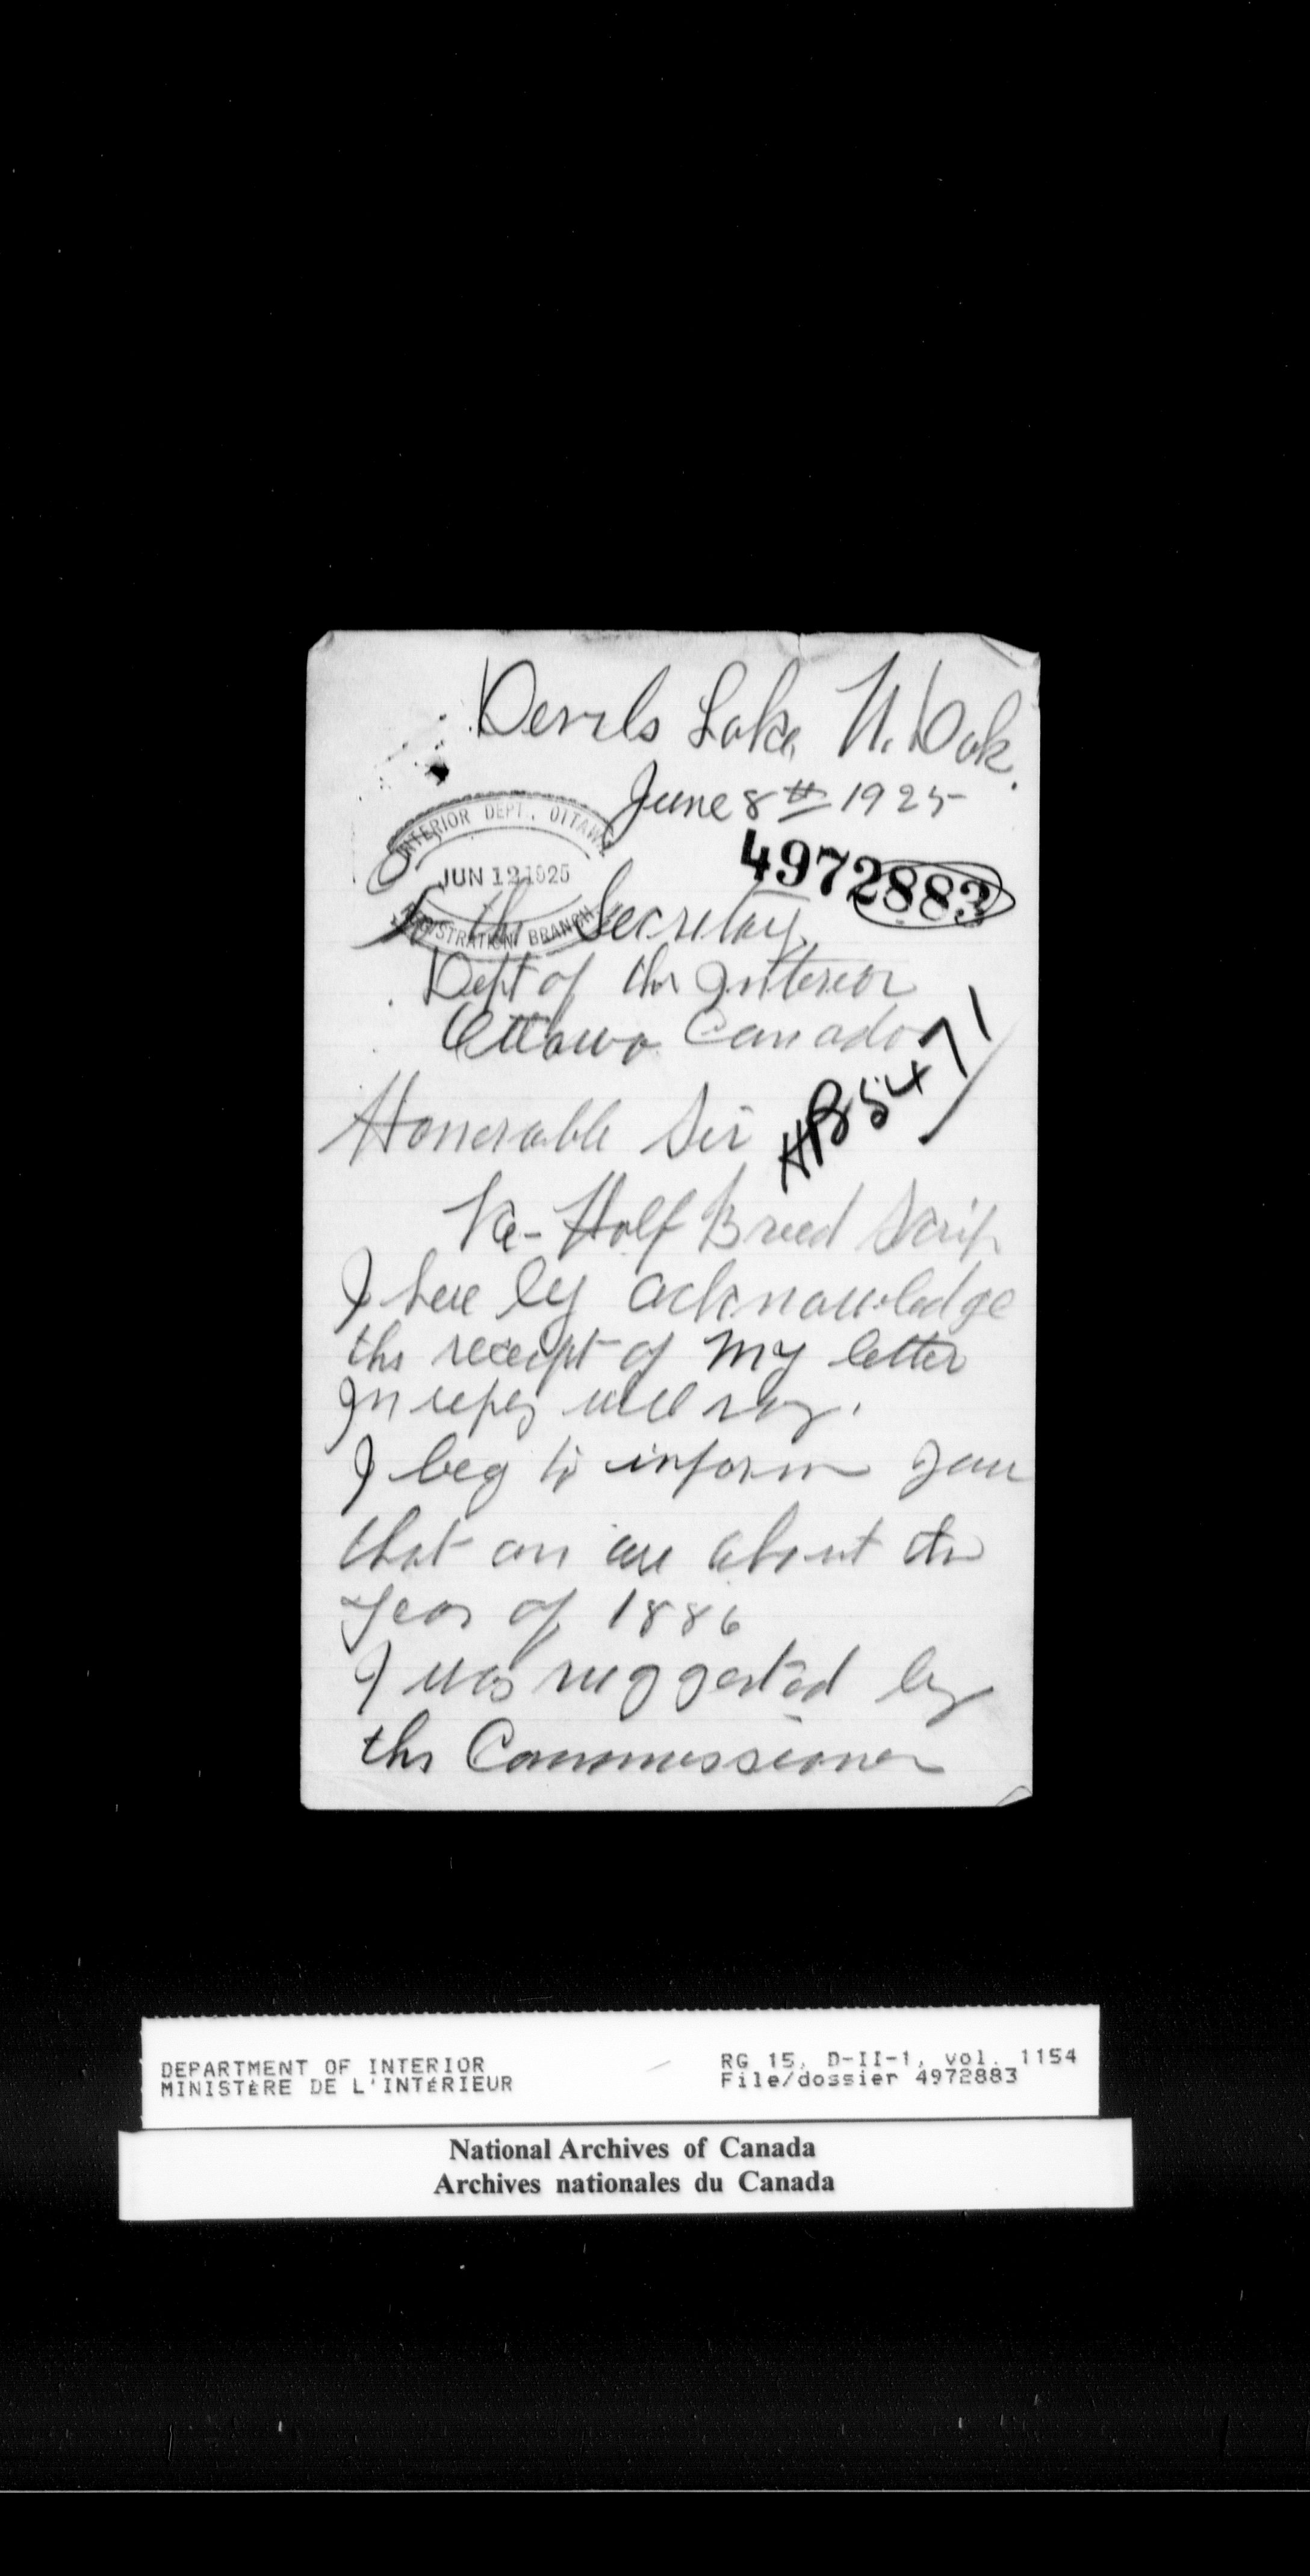 Devils Lake N. Dak.
June 8th 1925
INTERIOR DEPT., OTTAWA
JUN 12 1925
REGISTRATION BRANCH
4972883
To the Secretary
Dept of the Interior
Ottawa Canada
HB 5471
Honorable Sir
Re- Half Breed Scrip
I here by acknowledge
the receipt of my letter
In reply will say.
I beg to inform you
that on are about the
year of 1886
I was suggested by
the Commissioner
DEPARTMENT OF INTERIOR
MINISTÈRE DE L'INTÉRIEUR
RG 15, D-II-1, vol. 1154
File/dossier 4972883
National Archives of Canada
Archives nationales du Canada